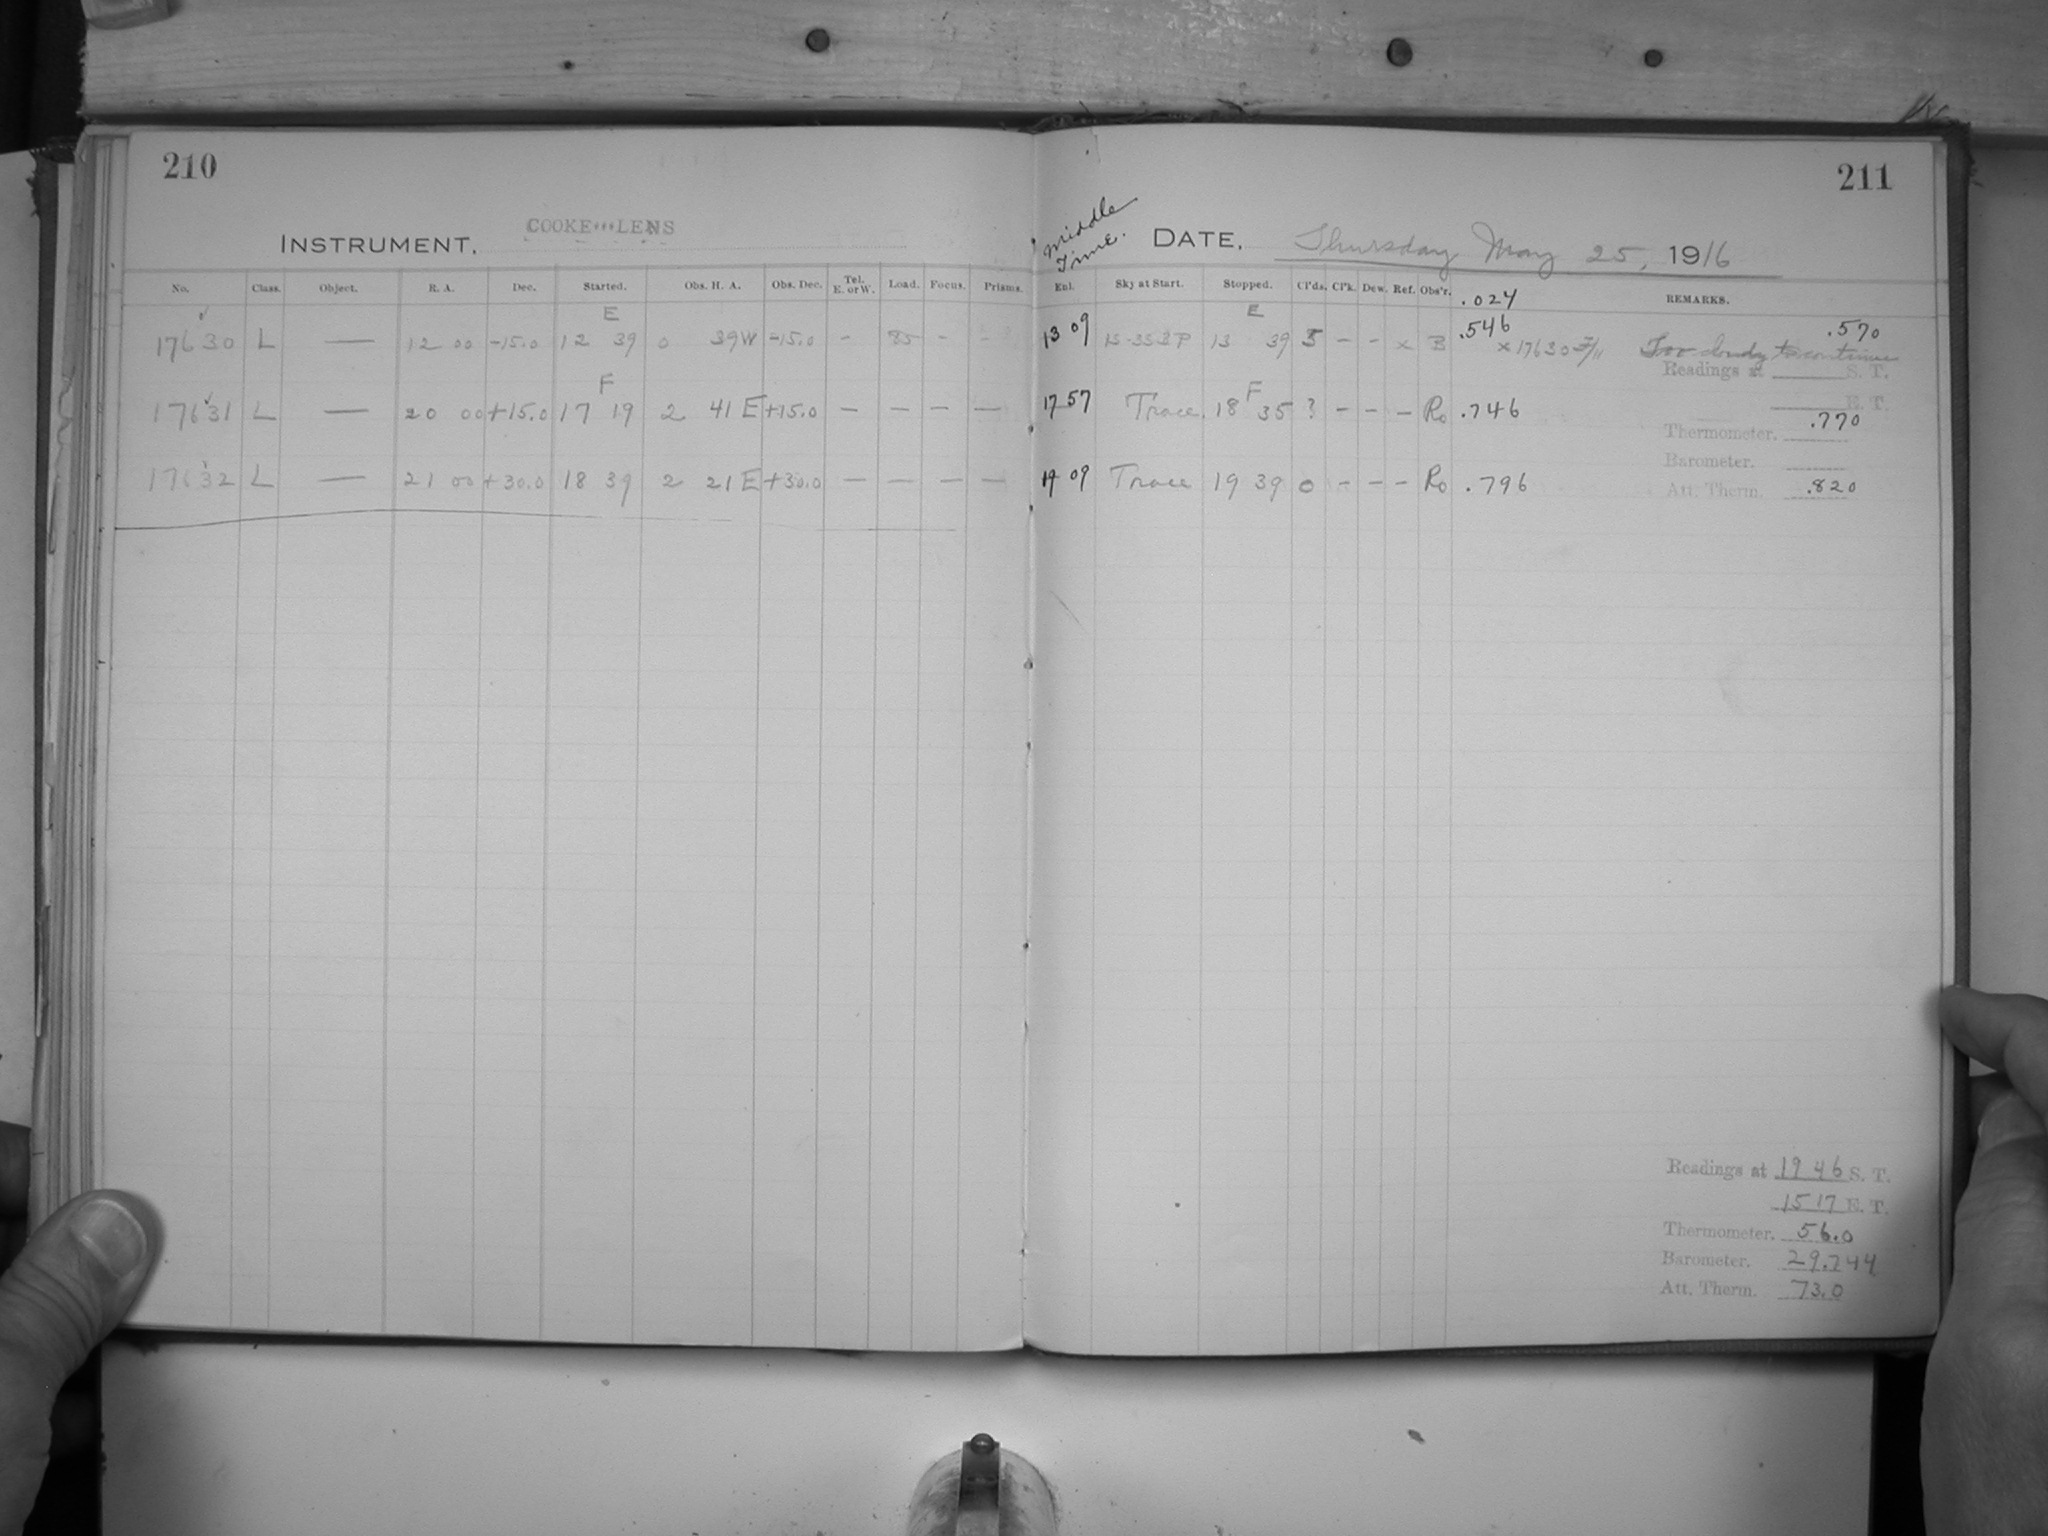 210
211
COOKE***LENS
INSTRUMENT,
Middle Time.
DATE, Thursday May 25, 1916
No. Class. Object. R. A. Dec. Started. Obs. H. A. Obs. Dec. Tel. E. or W. Load. Focus. Prisms. Enl. Sky at Start. Stopped. Cl'ds. Cl'k. Dew. Ref. Obs'r. .024 REMARKS.
E E
17630 L — 12 00 -15.0 12 39 0 39W -15.0 - 85 - - 13 09 13 39 5 - - x B .546 x 17630 .570
Too cloudy to continue
Readings at S. T.
E. T.
F F
17631 L — 20 00 +15.0 17 19 2 41 E +15.0 — — — — 17 57 Trace 18 35 ? - - - Ro .746 .770
Thermometer.
Barometer.
17632 L — 21 00 +30.0 18 39 2 21 E +30.0 — — — — 19 09 Trace 19 39 0 - - - Ro .796
Att. Therm. .820
Readings at 19 46 S. T.
15 17 E. T.
Thermometer. 56.0
Barometer. 29.744
Att. Therm. 73.0